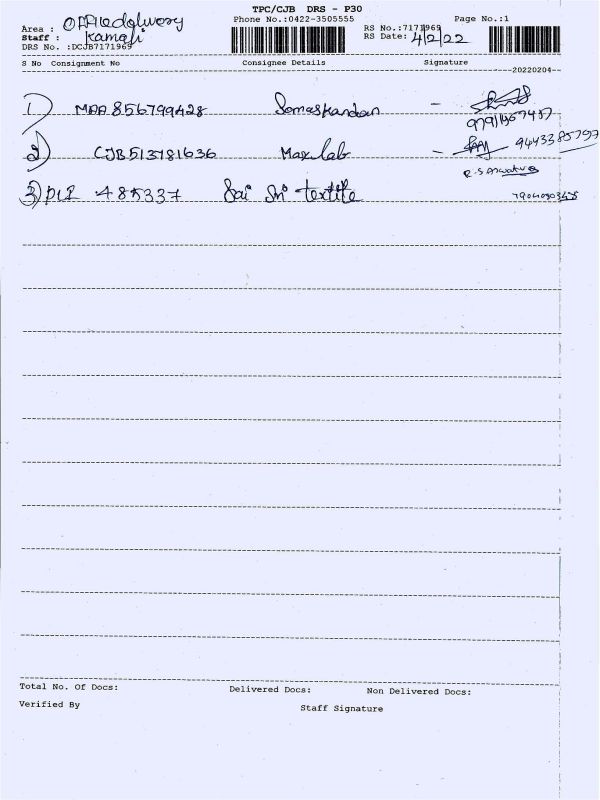 TPC/CJB DRS - P30
Phone No.:0422-3505555
Page No.:1
Area : Office delivery
RS No.:7171969
Staff : Kamali
RS Date: 4/2/22
DRS No. :DCJB7171969
S No Consignment No Consignee Details Signature
20220204
1) MAA856799428 Somaskandan -
2) CJB513781636 Max lab - 9443385797
3) PLI 485337 Sai Sri textile
Total No. Of Docs: Delivered Docs: Non Delivered Docs:
Verified By
Staff Signature